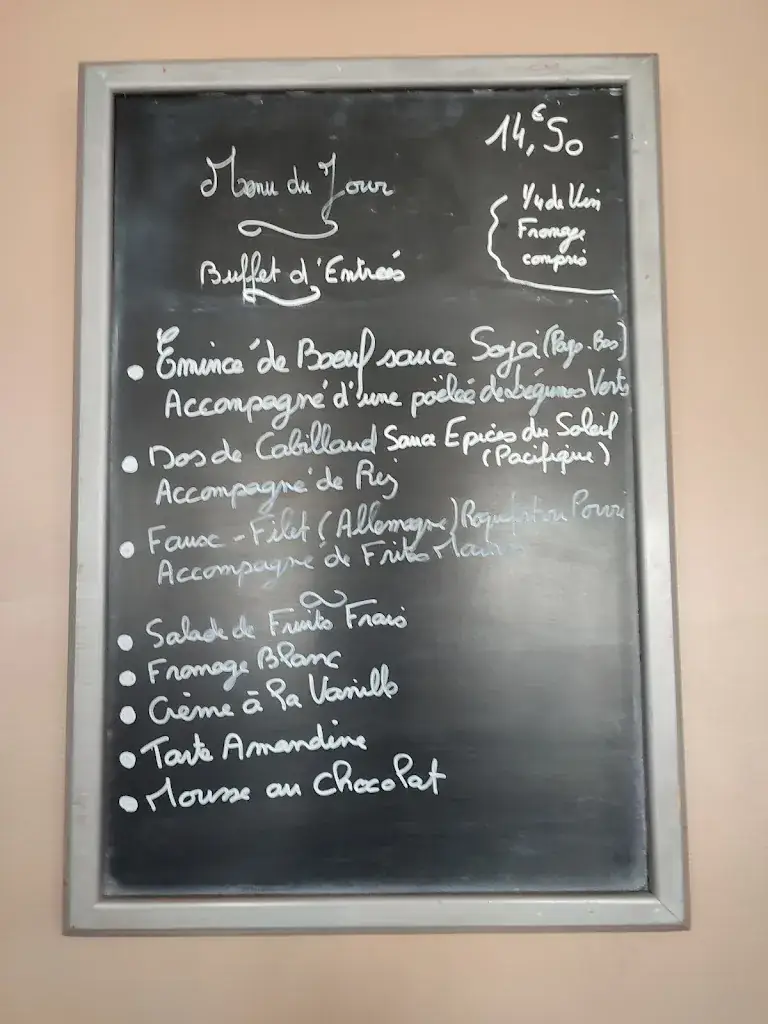 14,€50
Menu du Jour
1/4 de Vin
Fromage
compris
Buffet d'Entrées
• Émincé de Boeuf sauce Soja (Pays-Bas)
Accompagné d'une poêlée de Légumes Verts
• Dos de Cabillaud Sauce Epices du Soleil
(Pacifique)
Accompagné de Riz
• Faux-Filet (Allemagne) Roquefort ou Poivre
Accompagné de Frites Maison
• Salade de Fruits Frais
• Fromage Blanc
• Crème à la Vanille
• Tarte Amandine
• Mousse au Chocolat